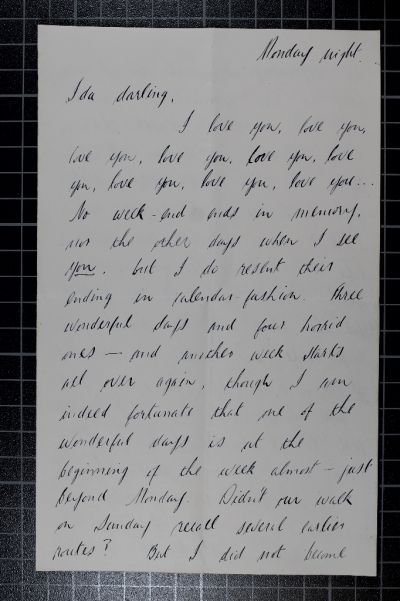 Monday night.
Ida darling,
I love you, love you,
love you, love you, love you, love
you, love you, love you, love you...
No week-end ends in memory,
nor the other days when I see
you, but I do resent their
ending in calendar-fashion. Three
wonderful days and four horrid
ones — and another week starts
all over again, though I am
indeed fortunate that one of the
wonderful days is at the
beginning of the week almost — just
beyond Monday. Didn't our walk
on Sunday recall several earlier
routes? But I did not become